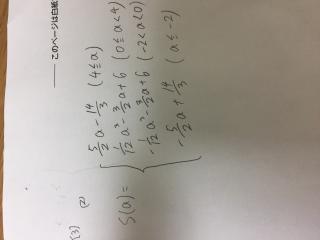 このページは白紙
[3]
(2)
S(a) =
5/12 a - 14/3 (4≦a)
1/12 a³ - 3/2 a + 6 (0≦a<4)
-1/12 a³ - 3/2 a + 6 (-2<a<0)
-5/2 a + 14/3 (a≦-2)